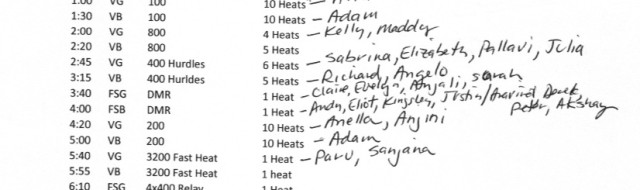 1:00 VG 100 10 Heats
1:30 VB 100 10 Heats – Adam
2:00 VG 800 4 Heats – Kelly, Maddy
2:20 VB 800 5 Heats
2:45 VG 400 Hurdles 6 Heats – Sabrina, Elizabeth, Pallavi, Julia
3:15 VB 400 Hurldes 5 Heats – Richard, Angelo
3:40 FSG DMR 1 Heat – Claire, Evelyn, Anjali, Sarah
4:00 FSB DMR 1 Heat – Andy, Eliot, Kingsley, Justin/Aravind Derek, Peter, Akshay
4:20 VG 200 10 Heats – Anella, Anjini
5:00 VB 200 10 Heats – Adam
5:40 VG 3200 Fast Heat 1 Heat – Paru, Sanjana
5:55 VB 3200 Fast Heat 1 heat
6:10 FSG 4x400 Relay